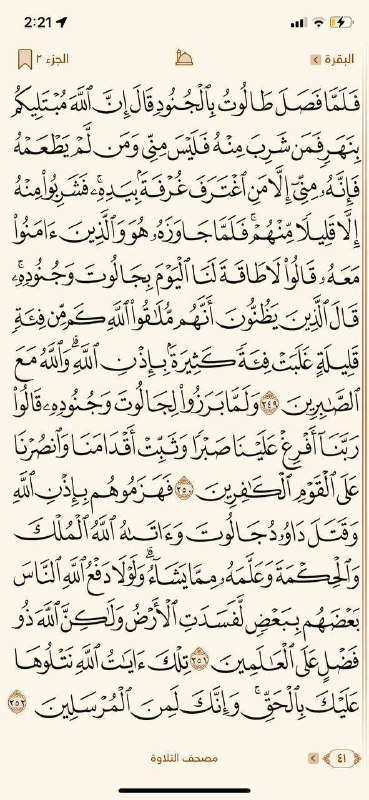 2:21
البقرة
الجزء ٢
فَلَمَّا فَصَلَ طَالُوتُ بِٱلْجُنُودِ قَالَ إِنَّ ٱللَّهَ مُبْتَلِيكُم
بِنَهَرٍ فَمَن شَرِبَ مِنْهُ فَلَيْسَ مِنِّى وَمَن لَّمْ يَطْعَمْهُ
فَإِنَّهُۥ مِنِّىٓ إِلَّا مَنِ ٱغْتَرَفَ غُرْفَةًۢ بِيَدِهِۦۚ فَشَرِبُوا۟ مِنْهُ
إِلَّا قَلِيلًا مِّنْهُمْۚ فَلَمَّا جَاوَزَهُۥ هُوَ وَٱلَّذِينَ ءَامَنُوا۟
مَعَهُۥ قَالُوا۟ لَا طَاقَةَ لَنَا ٱلْيَوْمَ بِجَالُوتَ وَجُنُودِهِۦۚ
قَالَ ٱلَّذِينَ يَظُنُّونَ أَنَّهُم مُّلَٰقُوا۟ ٱللَّهِ كَم مِّن فِئَةٍ
قَلِيلَةٍ غَلَبَتْ فِئَةً كَثِيرَةًۢ بِإِذْنِ ٱللَّهِۗ وَٱللَّهُ مَعَ
ٱلصَّٰبِرِينَ ٢٤٩ وَلَمَّا بَرَزُوا۟ لِجَالُوتَ وَجُنُودِهِۦ قَالُوا۟
رَبَّنَآ أَفْرِغْ عَلَيْنَا صَبْرًا وَثَبِّتْ أَقْدَامَنَا وَٱنصُرْنَا
عَلَى ٱلْقَوْمِ ٱلْكَٰفِرِينَ ٢٥٠ فَهَزَمُوهُم بِإِذْنِ ٱللَّهِ
وَقَتَلَ دَاوُۥدُ جَالُوتَ وَءَاتَىٰهُ ٱللَّهُ ٱلْمُلْكَ
وَٱلْحِكْمَةَ وَعَلَّمَهُۥ مِمَّا يَشَآءُۗ وَلَوْلَا دَفْعُ ٱللَّهِ ٱلنَّاسَ
بَعْضَهُم بِبَعْضٍ لَّفَسَدَتِ ٱلْأَرْضُ وَلَٰكِنَّ ٱللَّهَ ذُو
فَضْلٍ عَلَى ٱلْعَٰلَمِينَ ٢٥١ تِلْكَ ءَايَٰتُ ٱللَّهِ نَتْلُوهَا
عَلَيْكَ بِٱلْحَقِّۚ وَإِنَّكَ لَمِنَ ٱلْمُرْسَلِينَ ٢٥٢
٤١
مصحف التلاوة